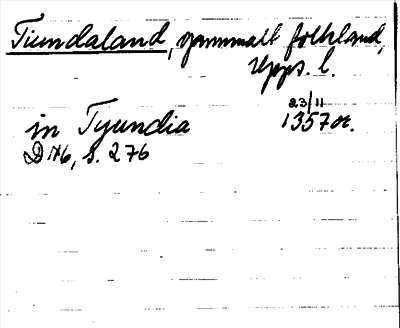 Tiundaland, gammalt folkland,
Upps. l.
23/11
in Tyundia 1357 or.
DN6, s. 276